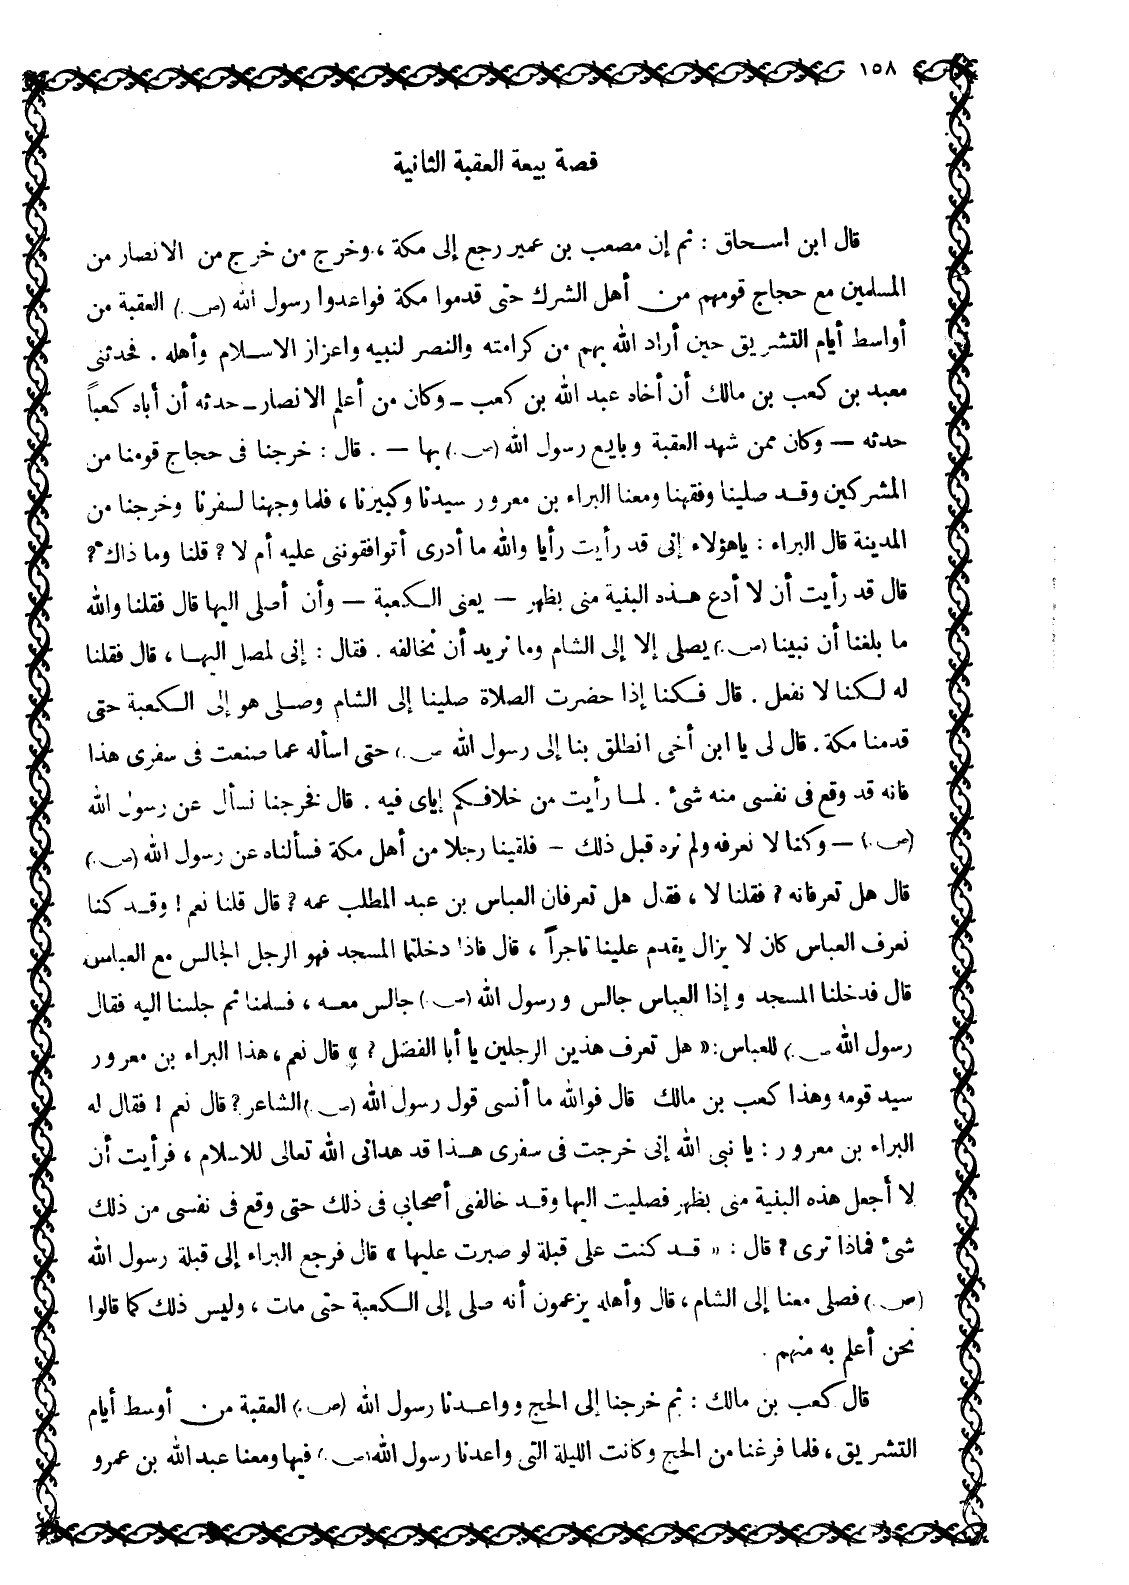 ١٥٨
قصة بيعة العقبة الثانية
قال ابن اسحاق : ثم إن مصعب بن عمير رجع إلى مكة ، وخرج من خرج من الانصار من
المسلمين مع حجاج قومهم من أهل الشرك حتى قدموا مكة فواعدوا رسول الله (ص.) العقبة من
أواسط أيام التشريق حين أراد الله بهم من كرامته والنصر لنبيه واعزاز الاسلام وأهله . فحدثنى
معبد بن كعب بن مالك أن أخاه عبد الله بن كعب ــ وكان من أعلم الانصار ــ حدثه أن أباه كعباً
حدثه — وكان ممن شهد العقبة وبايع رسول الله (ص.) بها — . قال : خرجنا فى حجاج قومنا من
المشركين وقد صلينا وفقهنا ومعنا البراء بن معرور سيدنا وكبيرنا ، فلما وجهنا لسفرنا وخرجنا من
المدينة قال البراء : ياهؤلاء إنى قد رأيت رأيا والله ما أدرى أتوافقوننى عليه أم لا ? قلنا وما ذاك ?
قال قد رأيت أن لا أدع هذه البنية منى بظهر — يعنى الكعبة — وأن أصلى اليها قال فقلنا والله
ما بلغنا أن نبينا (ص.) يصلى إلا إلى الشام وما نريد أن نخالفه . فقال : إنى لمصل اليها ، قال فقلنا
له لكنا لا نفعل . قال فكنا إذا حضرت الصلاة صلينا إلى الشام وصلى هو إلى الكعبة حتى
قدمنا مكة . قال لى يا ابن أخى انطلق بنا إلى رسول الله ص.) حتى اسأله عما صنعت فى سفرى هذا
فانه قد وقع فى نفسى منه شئ . لما رأيت من خلافكم إياى فيه . قال فخرجنا نسأل عن رسول الله
(ص.) — وكنا لا نعرفه ولم نره قبل ذلك — فلقينا رجلا من أهل مكة فسألناه عن رسول الله (ص.)
قال هل تعرفانه ? فقلنا لا ، فقال هل تعرفان العباس بن عبد المطلب عمه ? قال قلنا نعم ! وقد كنا
نعرف العباس كان لا يزال يقدم علينا تاجراً ، قال فاذا دخلتما المسجد فهو الرجل الجالس مع العباس
قال فدخلنا المسجد وإذا العباس جالس ورسول الله (ص.) جالس معه ، فسلمنا ثم جلسنا اليه فقال
رسول الله ص.) للعباس: « هل تعرف هذين الرجلين يا أبا الفضل ? » قال نعم ، هذا البراء بن معرور
سيد قومه وهذا كعب بن مالك قال فوالله ما أنسى قول رسول الله (ص.) الشاعر ? قال نعم ! فقال له
البراء بن معرور : يا نبى الله إنى خرجت فى سفرى هذا قد هدانى الله تعالى للاسلام ، فرأيت أن
لا أجعل هذه البنية منى بظهر فصليت اليها وقد خالفنى أصحابى فى ذلك حتى وقع فى نفسى من ذلك
شئ فماذا ترى ? قال : « قد كنت على قبلة لو صبرت عليها » قال فرجع البراء إلى قبلة رسول الله
(ص.) فصلى معنا إلى الشام ، قال وأهله يزعمون أنه صلى إلى الكعبة حتى مات ، وليس ذلك كما قالوا
نحن أعلم به منهم .
قال كعب بن مالك : ثم خرجنا إلى الحج وواعدنا رسول الله (ص.) العقبة من أوسط أيام
التشريق ، فلما فرغنا من الحج وكانت الليلة التى واعدنا رسول الله (ص.) فيها ومعنا عبد الله بن عمرو